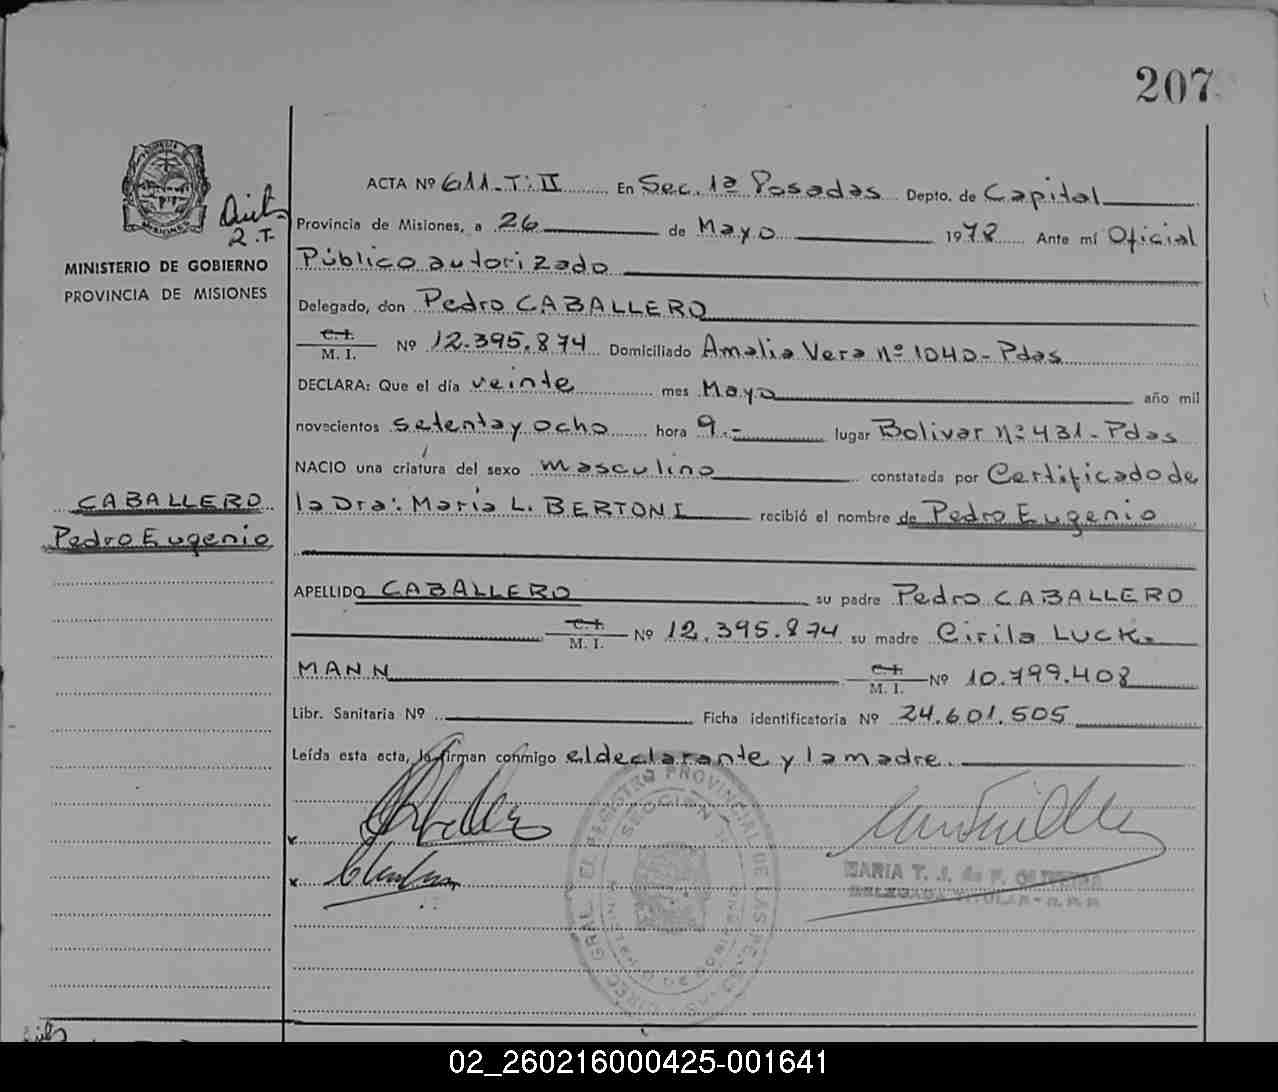 207
ACTA Nº 611-T:II En Sec. 1ª Posadas Depto. de Capital
Provincia de Misiones, a 26 de Mayo 1978 Ante mí Oficial
R.T.
MINISTERIO DE GOBIERNO
PROVINCIA DE MISIONES
Público autorizado
Delegado, don Pedro CABALLERO
C. I.
M. I. Nº 12.395.874 Domiciliado Amalia Vera nº 1040-Pdas
DECLARA: Que el día veinte mes Mayo año mil
novecientos setenta y ocho hora 9.- lugar Bolivar Nº 431-Pdas
NACIO una criatura del sexo masculino constatada por Certificado de
la Dra: María L. BERTONI recibió el nombre de Pedro Eugenio
CABALLERO
Pedro Eugenio
APELLIDO CABALLERO su padre Pedro CABALLERO
C. I.
M. I. Nº 12.395.874 su madre Cirila LUCK-
MANN C. I.
M. I. Nº 10.799.408
Libr. Sanitaria Nº Ficha identificatoria Nº 24.601.505
Leída esta acta, la firman conmigo el declarante y la madre.
DIREC. GRAL. DEL REGISTRO PROVINCIAL DE LAS PERSONAS
SECCION 1ª
MARIA T. J. de F. OLIVEIRA
DELEGADA TITULAR - R.P.P.
02_260216000425-001641